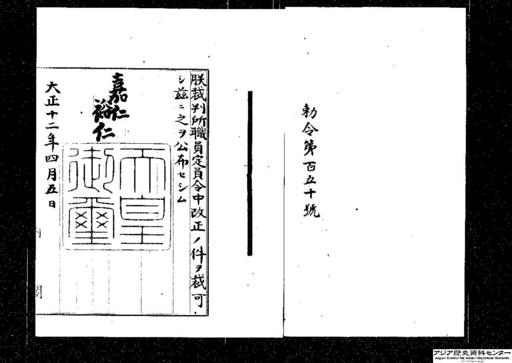 勅令第百五十號
朕裁判所職員定員令中改正ノ件ヲ裁可
シ茲ニ之ヲ公布セシム
嘉仁
裕仁
天皇
御璽
大正十二年四月五日
内閣
アジア歴史資料センター
Japan Center for Asian Historical Records